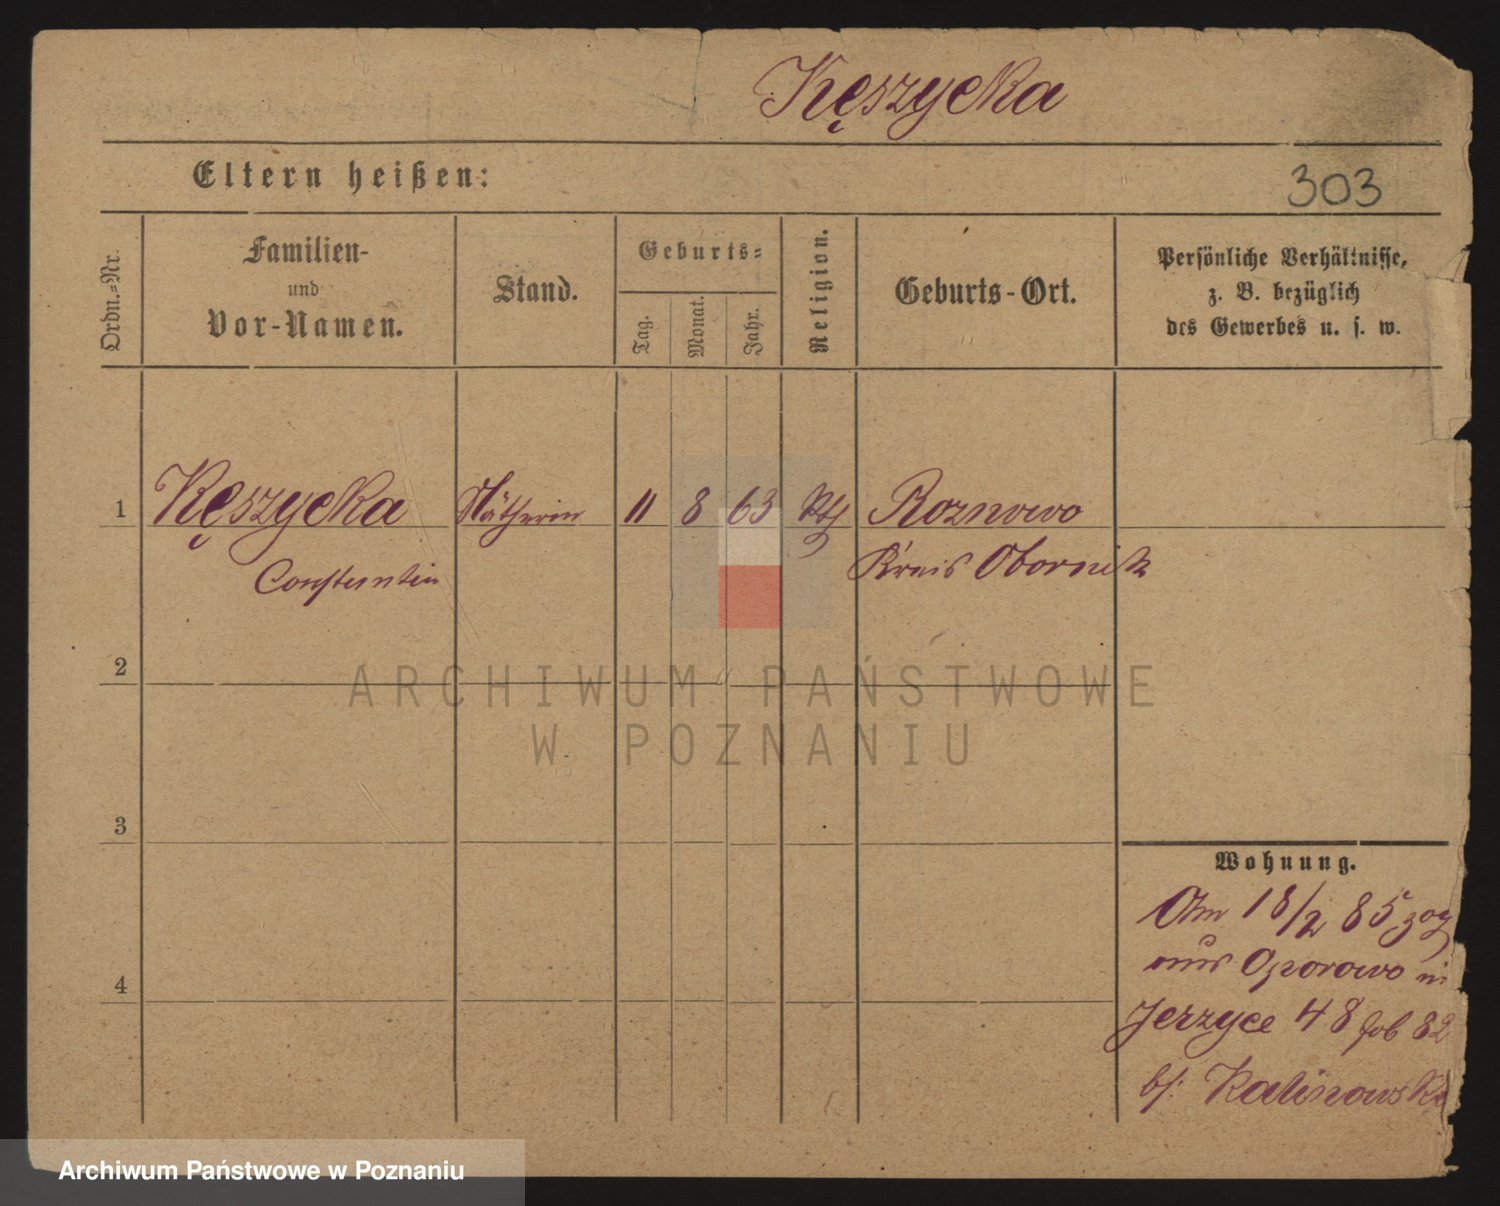 Kęszycka
Eltern heißen:
303
Ordn.=Nr.
Familien-
und
Vor-Namen.
Stand.
Geburts=
Tag.
Monat.
Jahr.
Religion.
Geburts-Ort.
Persönliche Verhältnisse,
z. B. bezüglich
des Gewerbes u. s. w.
1 Kęszycka Nätherin 11 8 63 Kth Roznowo
Constantin Kreis Obornik
2
3
4
Wohnung.
Am 18/2 85 zog
aus Oporowo in
Jerzyce 48 82
bf. Kalinowski
ARCHIWUM PAŃSTWOWE
W POZNANIU
Archiwum Państwowe w Poznaniu